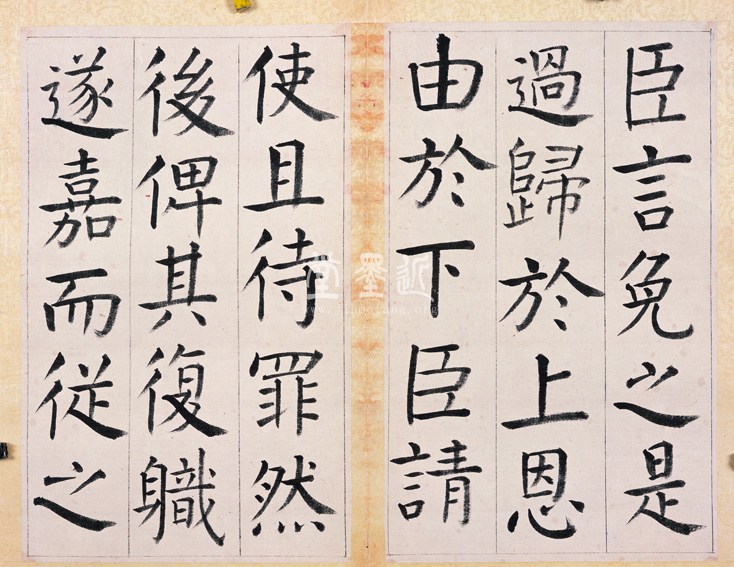 臣言免之是
過歸於上恩
由於下臣請
使且待罪然
後俾其復職
遂嘉而從之
近墨堂
www.jinmotang.org